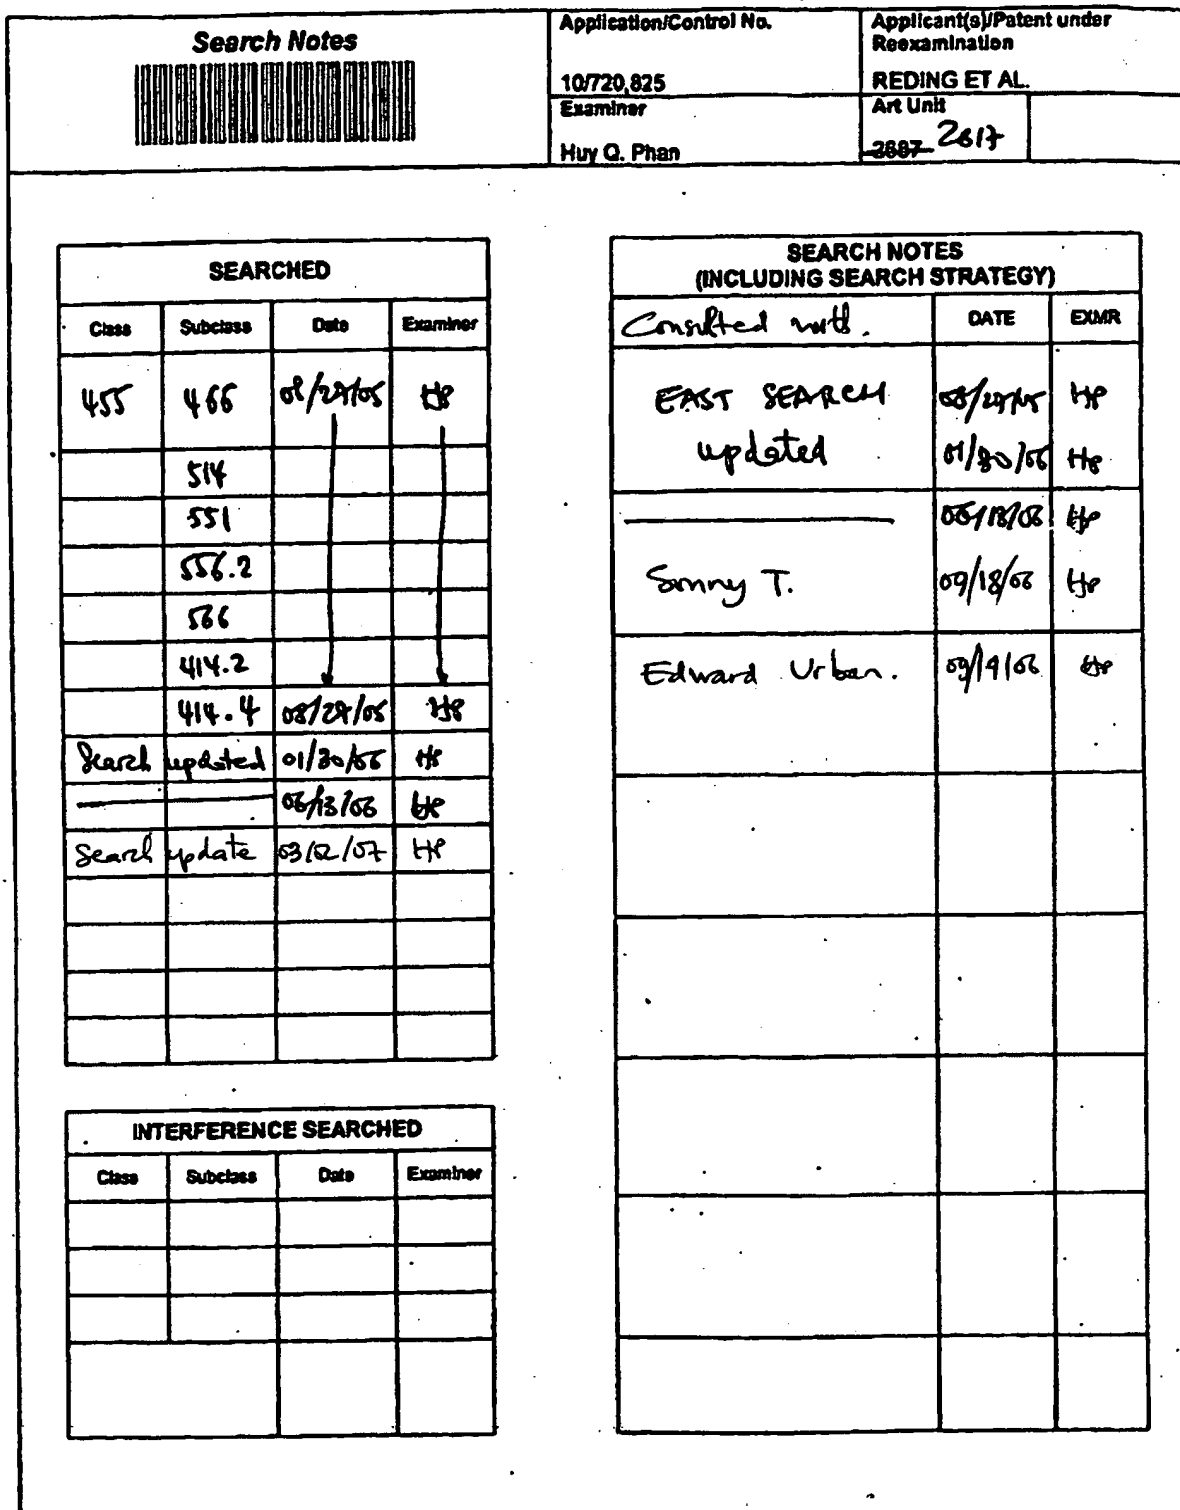 Search Notes
Application/Control No.
10/720,825
Applicant(s)/Patent under
Reexamination
REDING ET AL.
Examiner
Huy Q. Phan
Art Unit
2687 2617
SEARCHED
Class Subclass Date Examiner
455 466 08/29/05 HP
514
551
556.2
566
414.2
414.4 08/29/05 HP
Search updated 01/30/06 HP
06/13/06 HP
Search update 03/02/07 HP
INTERFERENCE SEARCHED
Class Subclass Date Examiner
SEARCH NOTES
(INCLUDING SEARCH STRATEGY)
Consulted with. DATE EXMR
EAST SEARCH 08/29/05 HP
updated 01/30/06 HP
HP
Sonny T. 09/18/06 HP
Edward Urban. 09/19/06 HP